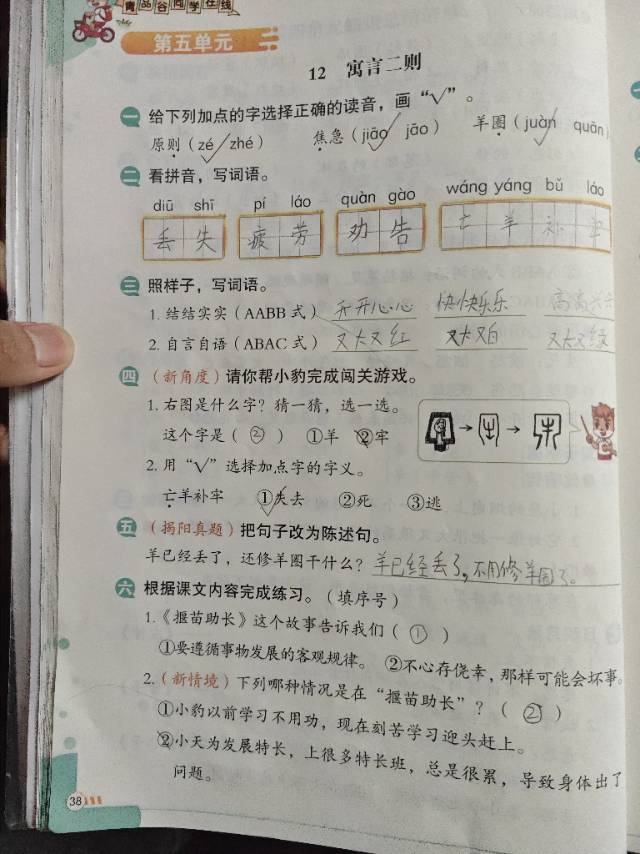 青品谷同学在线
第五单元
12 寓言二则
一 给下列加点的字选择正确的读音，画“√”。
原则（zé√ zhé） 焦急（jiāo√ jāo） 羊圈（juàn√ quān）
二 看拼音，写词语。
diū shī pí láo quàn gào wáng yáng bǔ láo
丢失 疲劳 劝告 亡羊补牢
三 照样子，写词语。
1. 结结实实（AABB 式） 开开心心 快快乐乐 高高兴兴
2. 自言自语（ABAC 式） 又大又红 又大又白 又大又绿
四 （新角度）请你帮小豹完成闯关游戏。
1. 右图是什么字？猜一猜，选一选。
这个字是（ ② ） ①羊 ②牢
2. 用“√”选择加点字的字义。
亡羊补牢 ①失去 ②死 ③逃
五 （揭阳真题）把句子改为陈述句。
羊已经丢了，还修羊圈干什么？羊已经丢了，不用修羊圈了。
六 根据课文内容完成练习。（填序号）
1.《揠苗助长》这个故事告诉我们（ ① ）
①要遵循事物发展的客观规律。 ②不心存侥幸，那样可能会坏事。
2.（新情境）下列哪种情况是在“揠苗助长”？（ ② ）
①小豹以前学习不用功，现在刻苦学习迎头赶上。
②小天为发展特长，上很多特长班，总是很累，导致身体出了
问题。
38